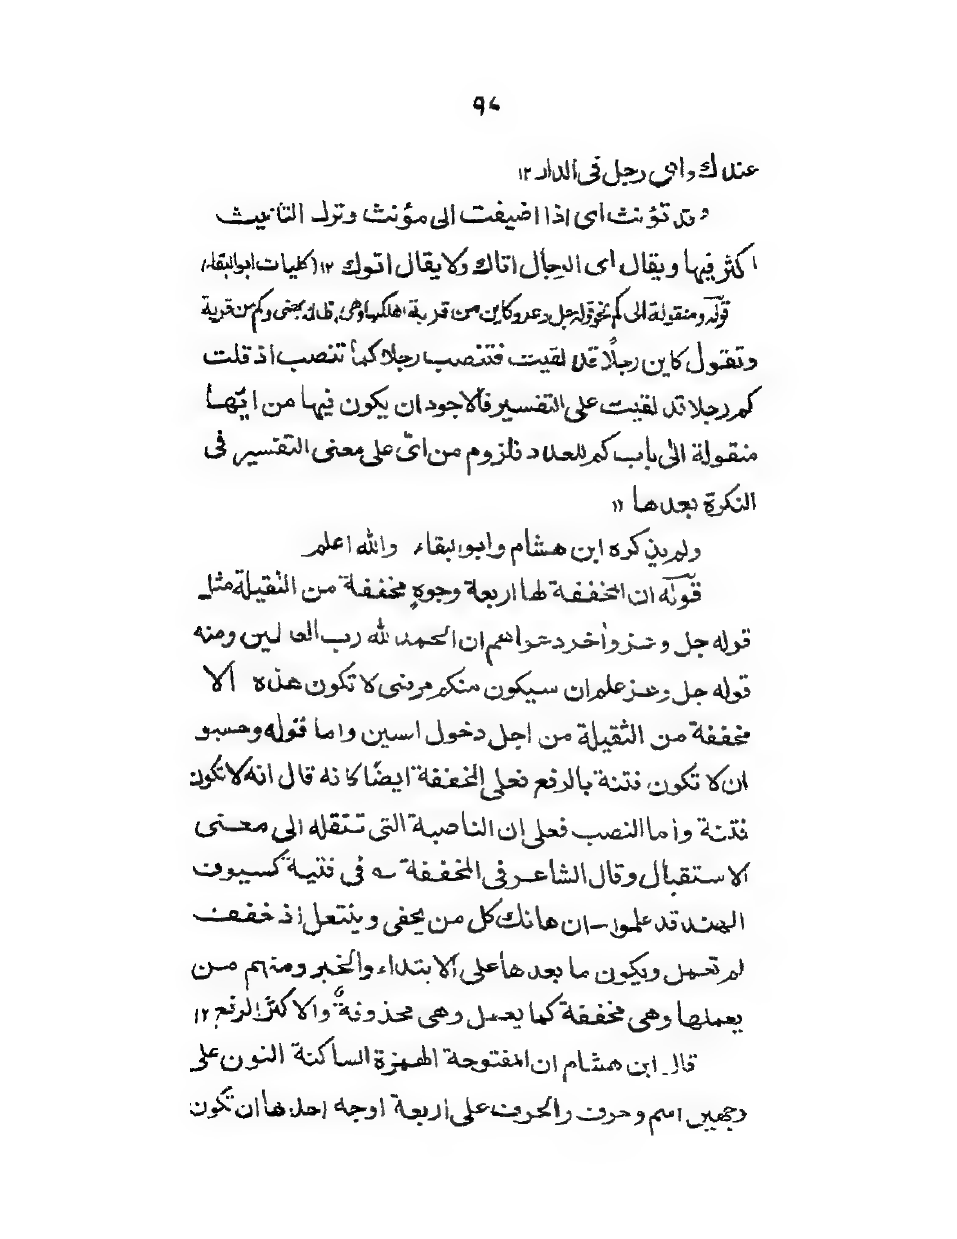 ٩٤
عندك واى رجل فى الدار ١٢
وقد تؤنث اى اذا اضيفت الى مؤنث وترك التانيث
اكثر فيها ويقال اى الرجال اتاك ولا يقال اتوك ١٢ (كليات ابوالبقاء)
قوله ومنقولة الى كم نحو قوله جل وعز وكاين من قرية اهلكنها وهى بمعنى وكم من قرية
وتقول كاين رجلاً قد لقيت فتنصب رجلا كما تنصب اذ قلت
كم رجلا قد لقيت على التفسير فالاجود ان يكون فيها من انها
منقولة الى باب كم للعدد فلزوم من اىّ على معنى التفسير فى
النكرة بعدها ١١
ولم يذكره ابن هشام وابو البقاء والله اعلم
قوله ان المخففة لها اربعة وجوه مخففة من الثقيلة مثل
قوله جل وعز وأخر دعواهم ان الحمد لله رب العا لمين ومنه
قوله جل وعز علم ان سيكون منكم مرضى لا تكون هذه الا
مخففة من الثقيلة من اجل دخول السين واما قوله وحسبو
ان لا تكون فتنة بالرفع فعلى المخففة ايضًا كانه قال انه لا تكون
فتنة وأما النصب فعلى ان الناصبة التى تنقله الى معنى
الاستقبال وقال الشاعر فى المخففة ؎ فى فتية كسيوف
الهند قد علموا – ان هالك كل من يحفى وينتعل اذ خففت
لم تعمل ويكون ما بعدها على الابتداء والخبر ومنهم من
يعملها وهى مخففة كما يعمل وهى محذوفة والاكثر الرفع ١٢
قال ابن هشام ان المفتوحة الهمزة الساكنة النون على
وجهين اسم وحرف والحرف على اربعة اوجه احدها ان تكون